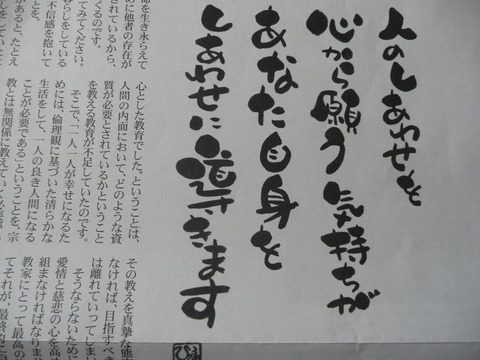 人のしあわせを
心から願う気持ちが
あなた自身を
しあわせに導きます
命を生き永らえて
めに他者の存在が
されているから、
くるのです。
てみてください。
らしをしている
不信感を抱いて
とを。
があると、たとえ
心とした教育でした。ということは、
人間の内面において、どのような資
質が必要とされているかということ
を教える教育が不足していたのです。
そこで、「一人一人が幸せになるた
めには、倫理観に基づいた清らかな
生活をして、一人の良き人間になる
ことが必要である」ということを、宗
教とは無関係に教えていく必要
その教えを真摯な態
なければ、目指すべき
は離れていってしまい
そうならないために
愛情と慈悲の心を高
組まなければなりま
教家にとって最高の
てそれが、最終的に